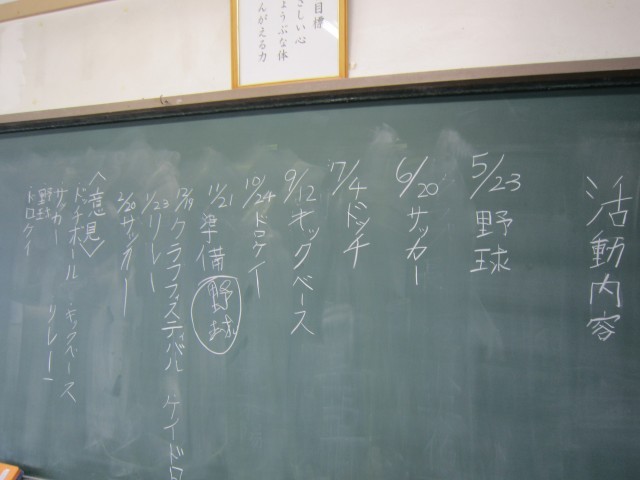 目標
さしい心
ょうぶな体
んがえる力
活動内容
5/23 野球
6/20 サッカー
7/4 ドッチ
9/12 キックベース
10/24 ドロケイ
11/21 準備 野球
12/19 クラブフェスティバル ケイドロ
1/23 リレー
2/20 サッカー
＜意見＞
・ドッチボール ・キックベース
サッカー リレー
野球
・ドロケイ